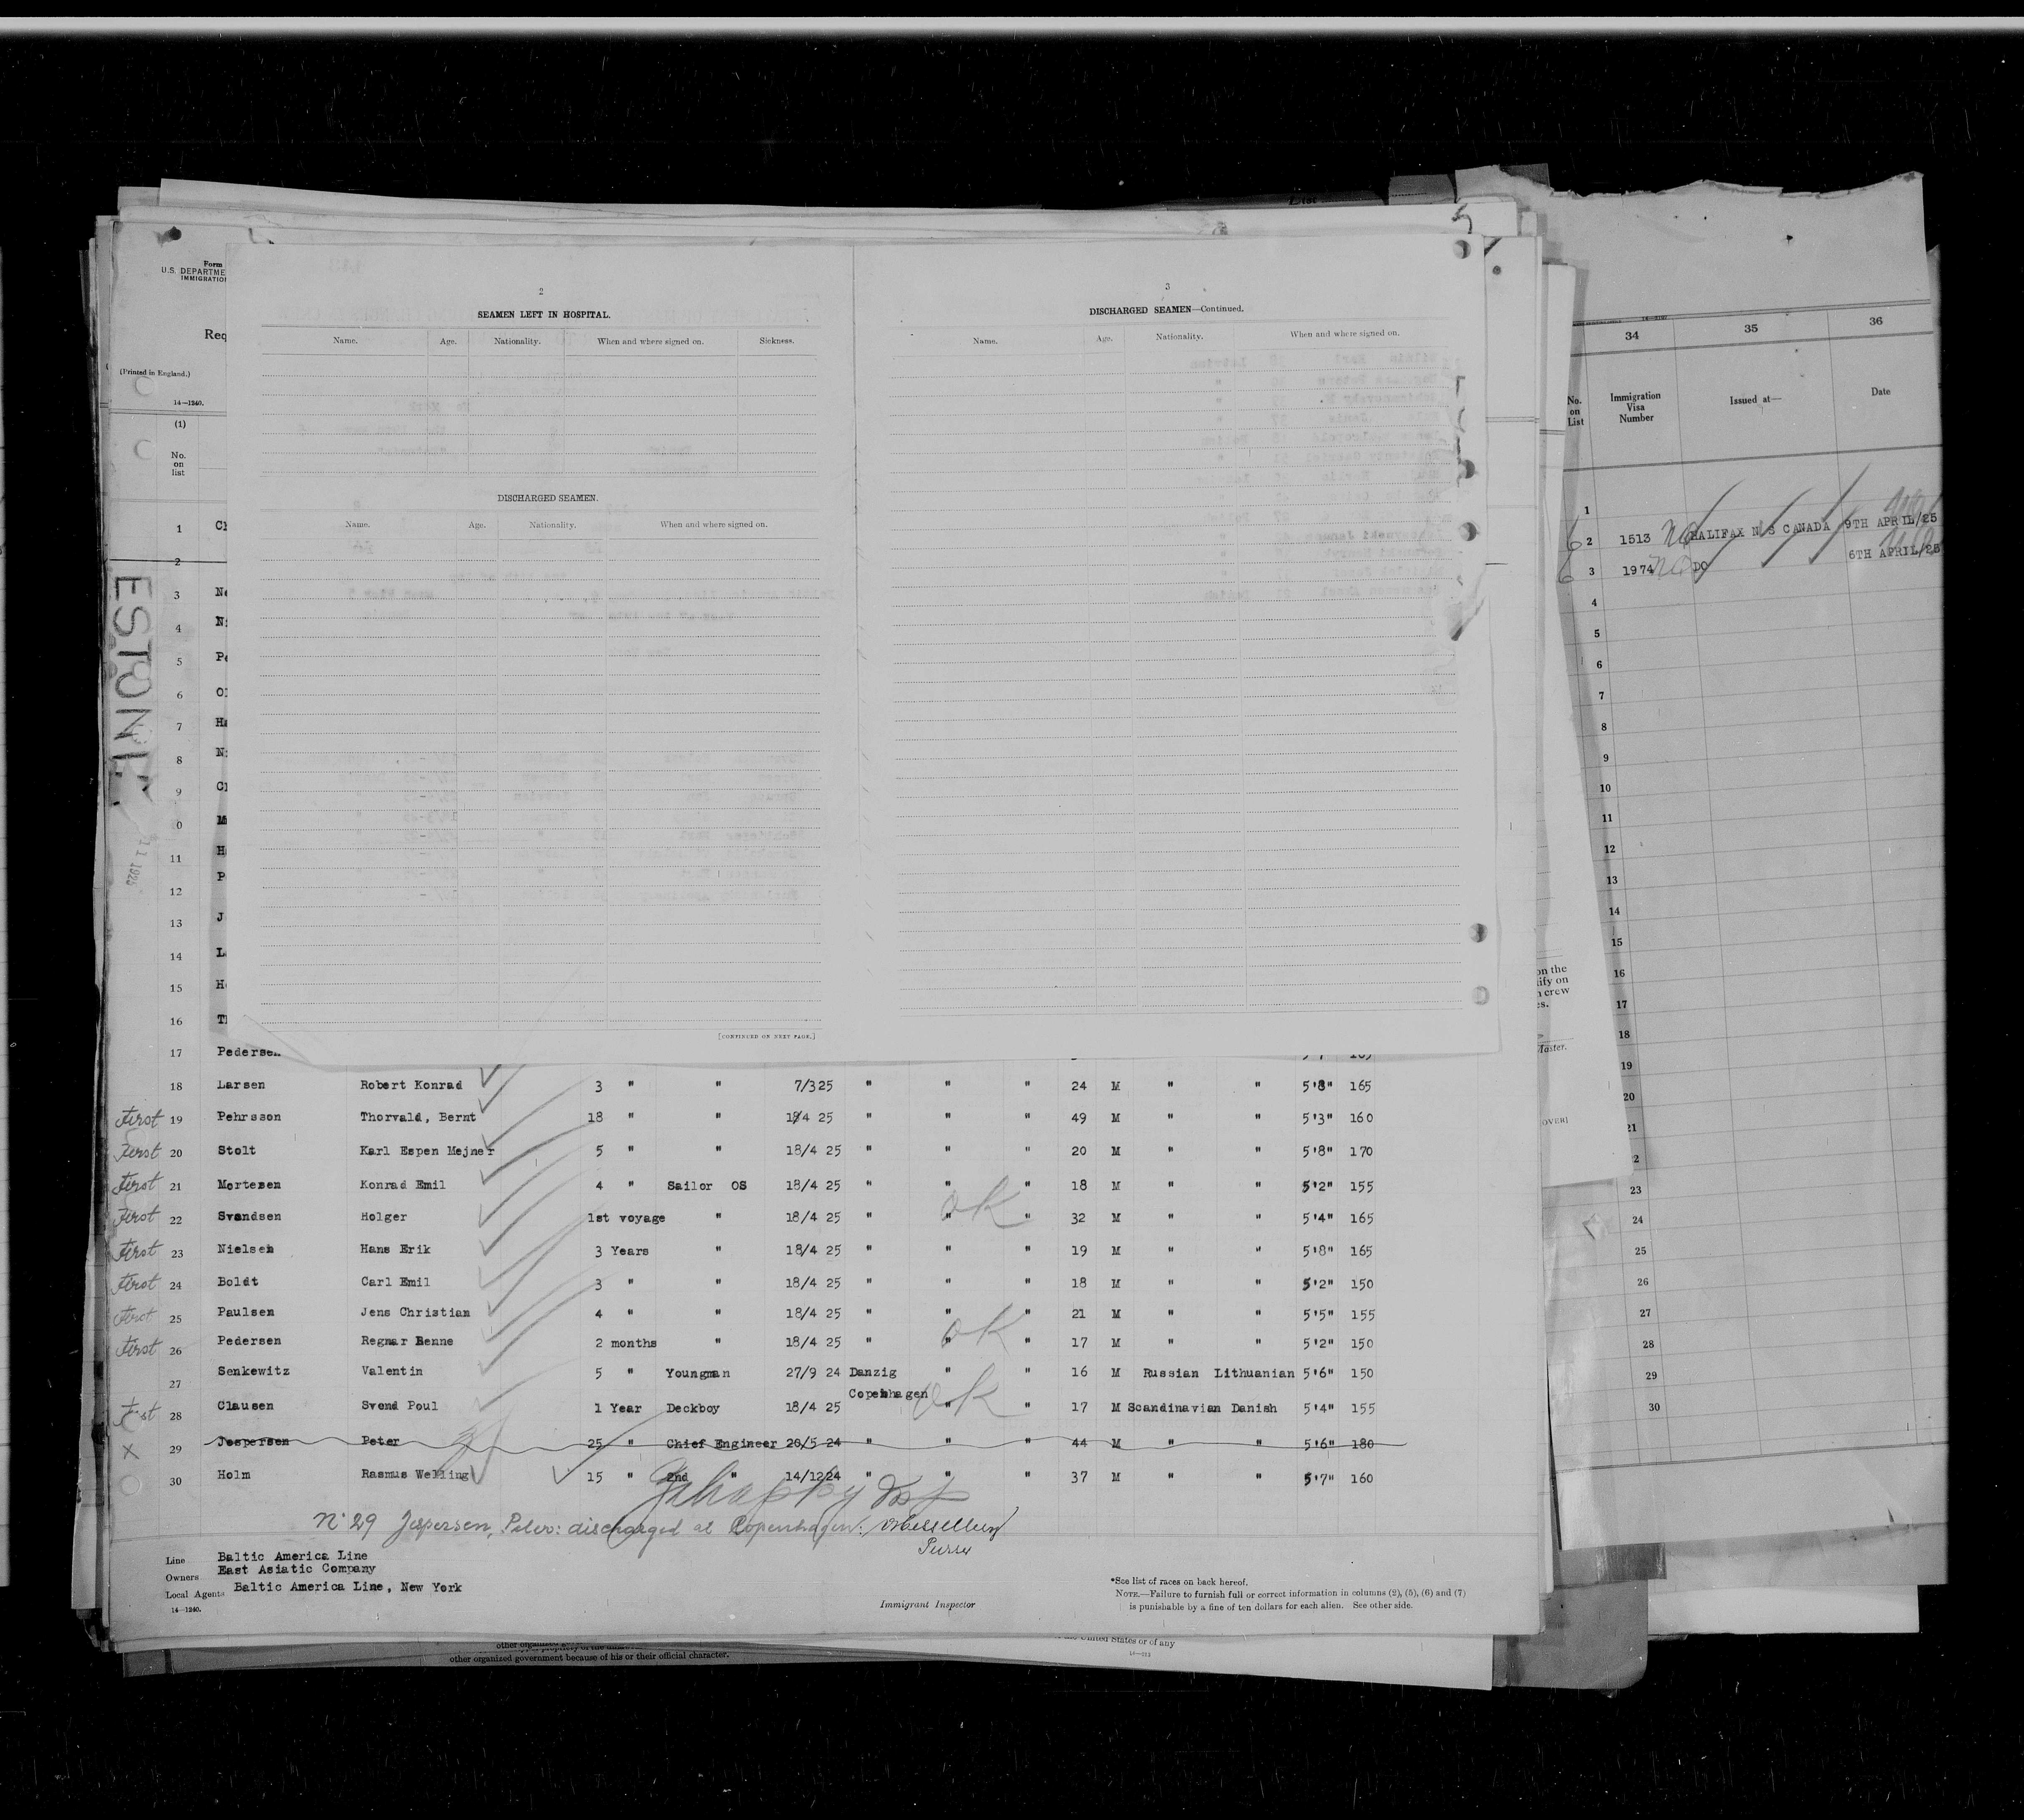 List
5
Form
U.S. DEPARTME
IMMIGRATION
Req
(Printed in England.)
14—1240.
(1)
No. on list
ESTONIA
11 1925
2
SEAMEN LEFT IN HOSPITAL.
Name. Age. Nationality. When and where signed on. Sickness.
DISCHARGED SEAMEN.
Name. Age. Nationality. When and where signed on.
[CONTINUED ON NEXT PAGE.]
3
DISCHARGED SEAMEN—Continued.
Name. Age. Nationality. When and where signed on.
1 Ch
2
3 Ne
4 Ni
5 Pe
6 Ol
7 Ha
8 Ni
9 Cl
0 M
11 H
12 P
13 J
14 L
15 H
16 Th
17 Pedersen 5'7" 165
18 Larsen Robert Konrad 3 " " 7/3 25 " " " 24 M " " 5'8" 165
First 19 Pehrsson Thorvald, Bernt 18 " " 18/4 25 " " " 49 M " " 5'3" 160
First 20 Stolt Karl Espen Mejner 5 " " 18/4 25 " " " 20 M " " 5'8" 170
First 21 Mortesen Konrad Emil 4 " Sailor OS 18/4 25 " " " 18 M " " 5'2" 155
First 22 Svendsen Holger 1st voyage " 18/4 25 " " ok " 32 M " " 5'4" 165
First 23 Nielsen Hans Erik 3 Years " 18/4 25 " " " 19 M " " 5'8" 165
First 24 Boldt Carl Emil 3 " " 18/4 25 " " " 18 M " " 5'2" 150
First 25 Paulsen Jens Christian 4 " " 18/4 25 " " " 21 M " " 5'5" 155
First 26 Pedersen Regnar Benne 2 months " 18/4 25 " " ok " 17 M " " 5'2" 150
27 Senkewitz Valentin 5 " Youngman 27/9 24 Danzig " " 16 M Russian Lithuanian 5'6" 150
Copenhagen ok
First 28 Clausen Svend Poul 1 Year Deckboy 18/4 25 " " 17 M Scandinavian Danish 5'4" 155
X 29 Jespersen Peter 25 " Chief Engineer 20/5 24 " " " 44 M " " 5'6" 180
30 Holm Rasmus Welling 15 " 2nd " 14/12 24 " " " 37 M " " 5'7" 160
No 29 Jespersen, Peter: discharged at Copenhagen.
Line Baltic America Line
Owners East Asiatic Company
Local Agents Baltic America Line, New York
14—1240.
Immigrant Inspector
*See list of races on back hereof.
NOTE.—Failure to furnish full or correct information in columns (2), (5), (6) and (7)
is punishable by a fine of ten dollars for each alien. See other side.
other organized government because of his or their official character.
the United States or of any
34 35 36
No. on List Immigration Visa Number Issued at— Date
1
2 1513 no HALIFAX N S CANADA 9TH APRIL/25
3 1974 no DO 6TH APRIL/25
4
5
6
7
8
9
10
11
12
13
14
15
16
17
18
19
20
21
2
23
24
25
26
27
28
29
30
on the
ify on
n crew
es.
Master.
OVER]